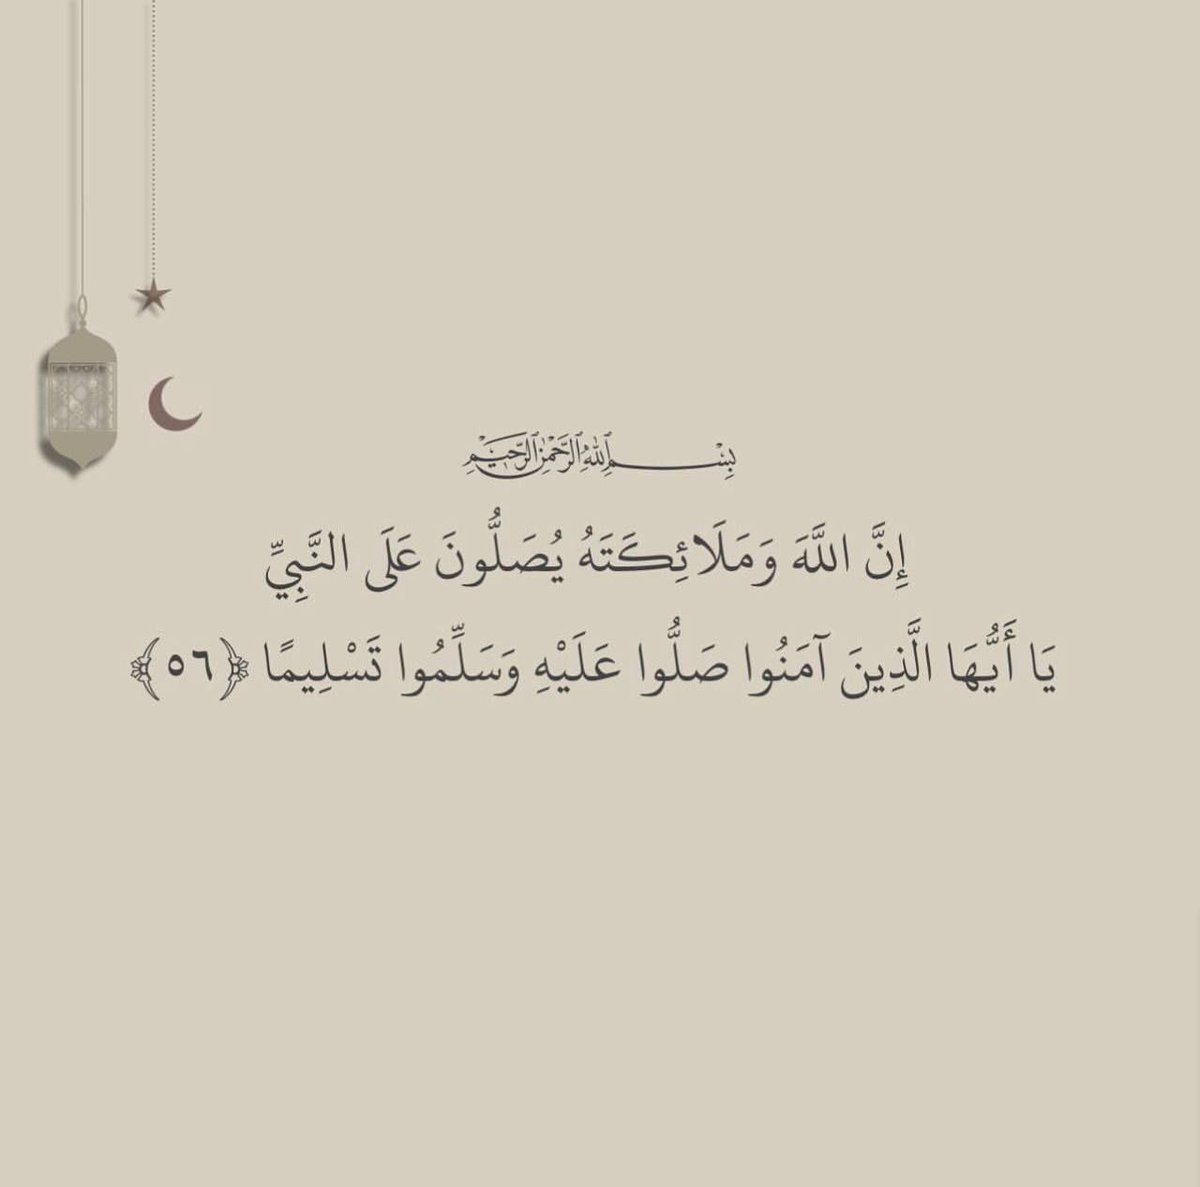 بِسْمِ ٱللَّهِ ٱلرَّحْمَٰنِ ٱلرَّحِيمِ
إِنَّ اللَّهَ وَمَلَائِكَتَهُ يُصَلُّونَ عَلَى النَّبِيِّ
يَا أَيُّهَا الَّذِينَ آمَنُوا صَلُّوا عَلَيْهِ وَسَلِّمُوا تَسْلِيمًا ﴿٥٦﴾